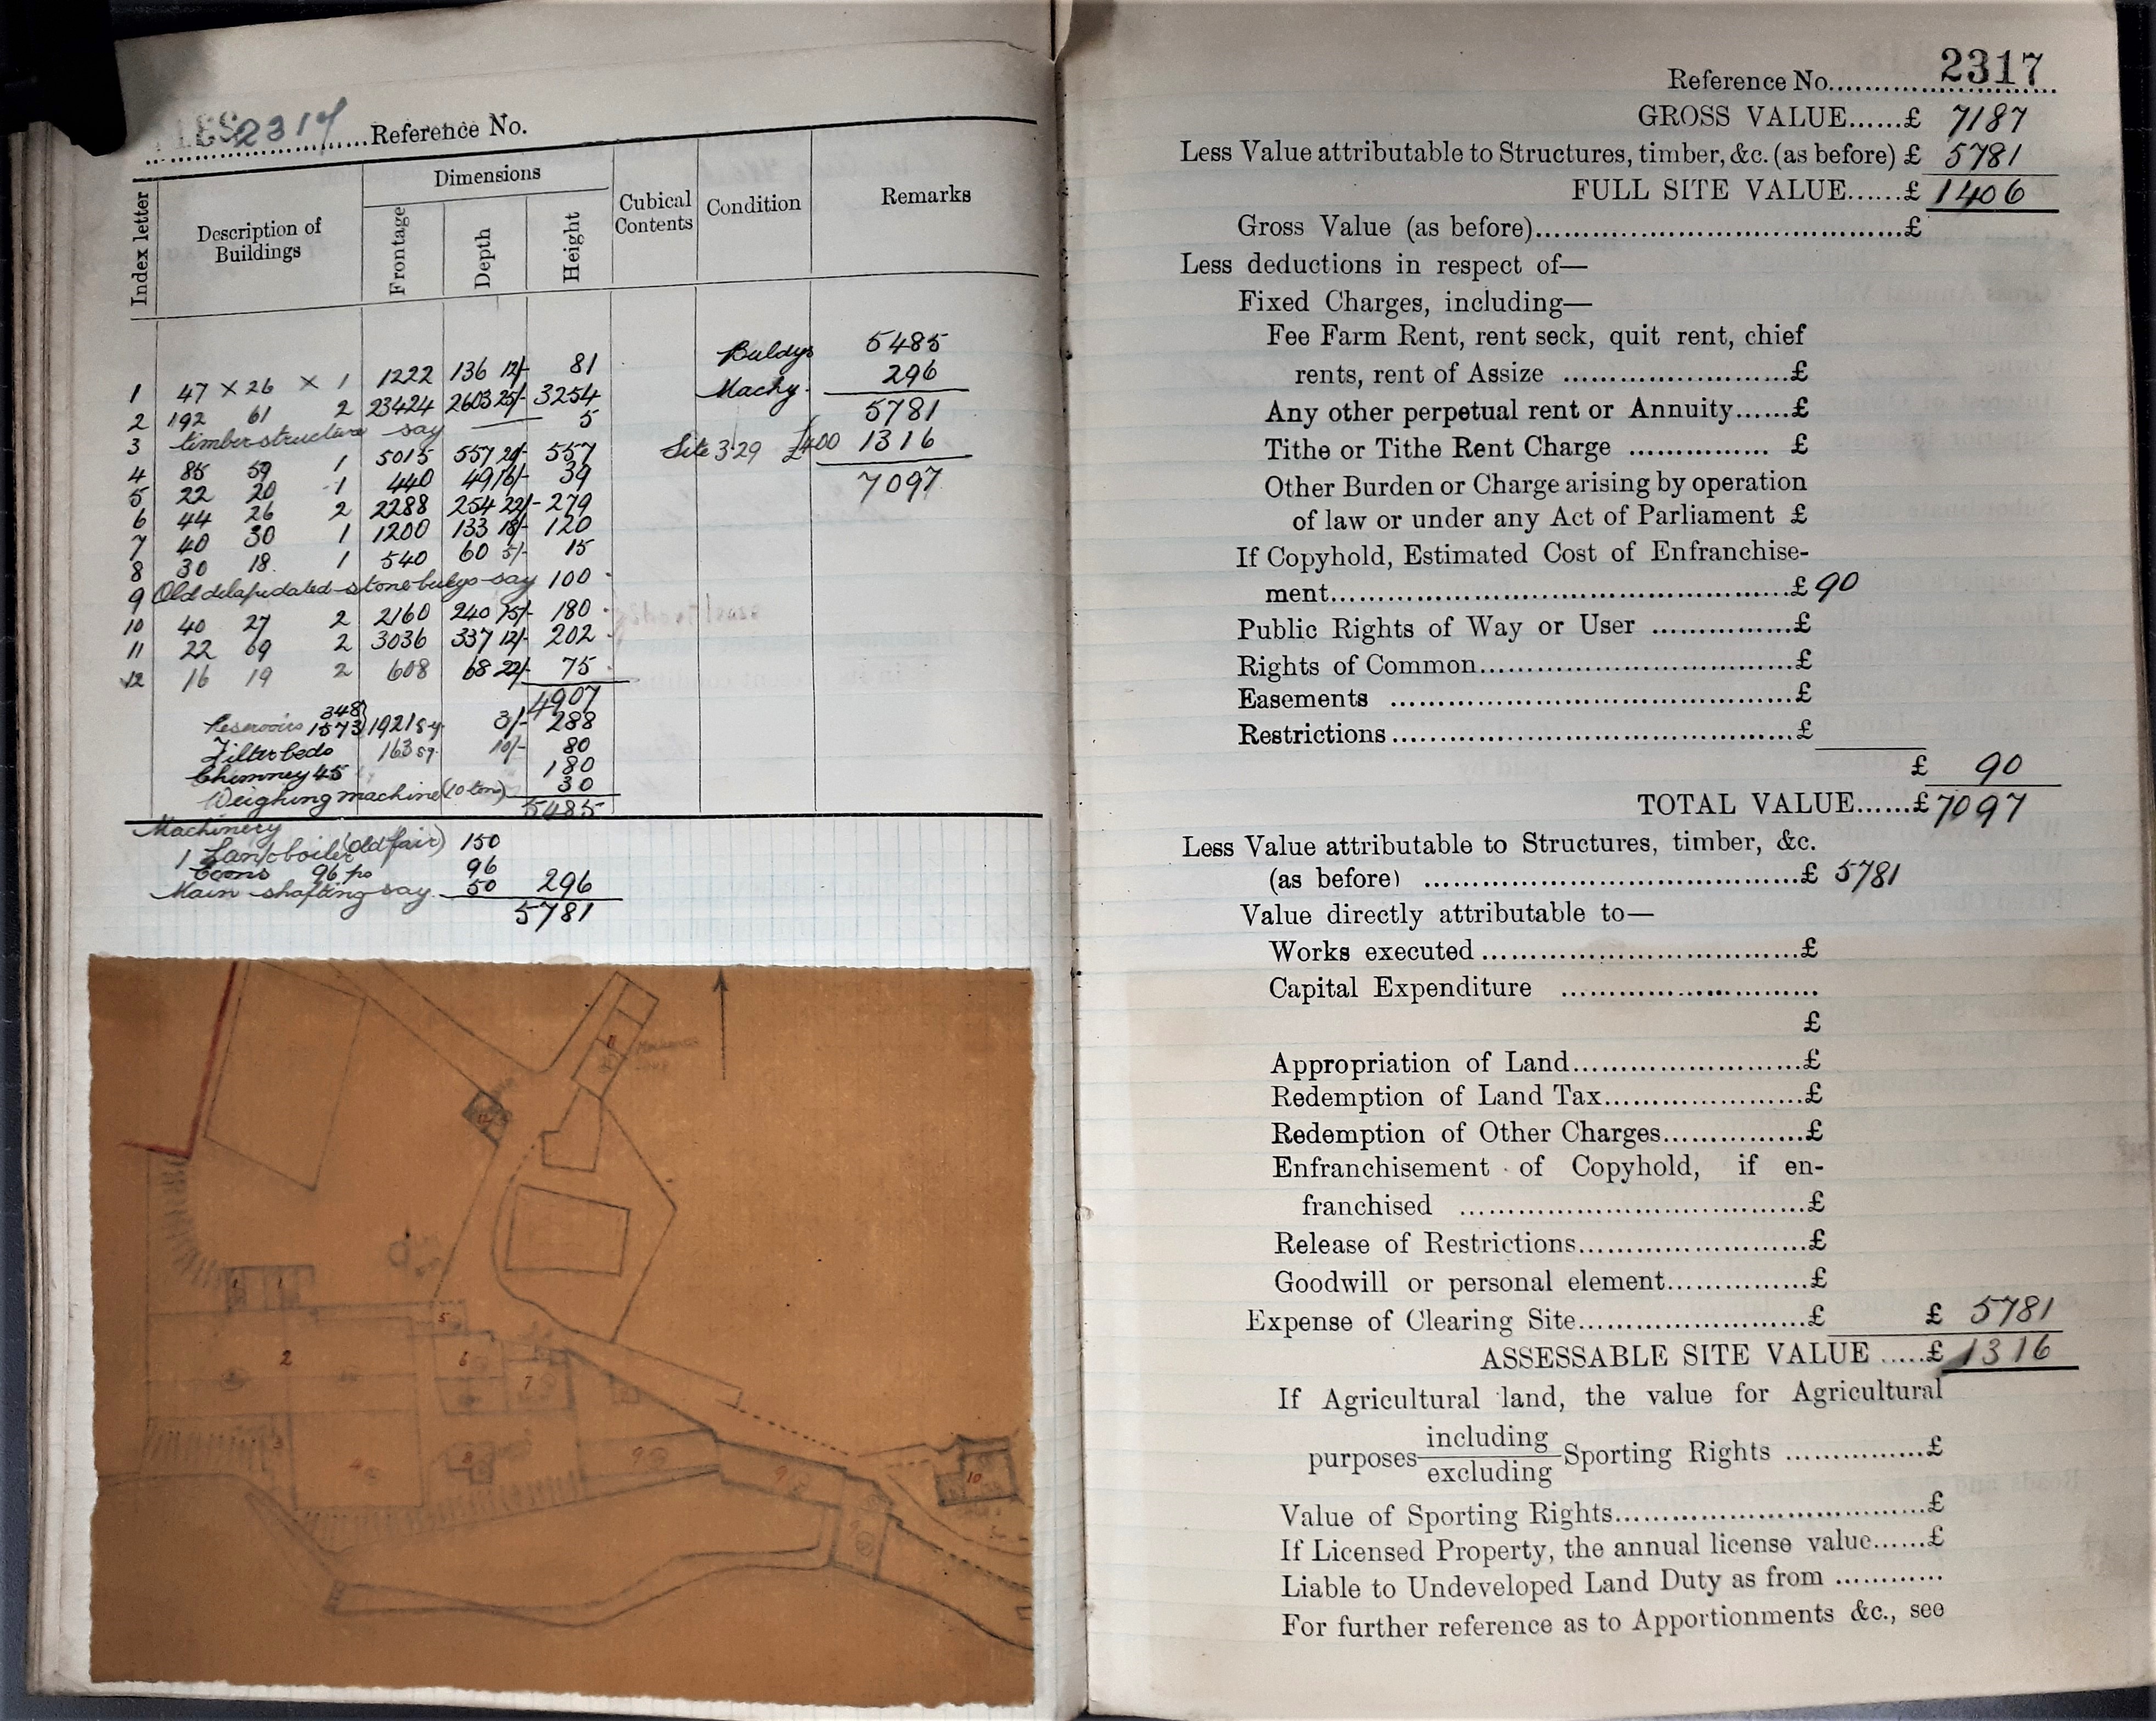 2317 Reference No.
Index letter
Description of Buildings
Dimensions
Frontage
Depth
Height
Cubical Contents
Condition
Remarks
1 47 × 26 × 1 1222 136 12/- 81
2 192 61 2 23424 2603 25/- 3254
3 timber structure say 5
4 85 59 1 5015 557 20/- 557
5 22 20 1 440 49 16/- 39
6 44 26 2 2288 254 22/- 279
7 40 30 1 1200 133 18/- 120
8 30 18 1 540 60 5/- 15
9 Old delapidated stone bldgs say 100
10 40 27 2 2160 240 15/- 180
11 22 69 2 3036 337 12/- 202
12 16 19 2 608 68 22/- 75
4907
348
Reservoirs 1573 1921 sy. 3/- 288
Filter beds 163 sy. 10/- 80
Chimney 45 180
Weighing machine (10 tons) 30
5485
Buldgs 5485
Machy. 296
5781
Site 3·29 £400 1316
7097
Machinery
1 Lanc boiler (old fair) 150
Econs 96 ps 96
Main shafting say 50 296
5781
11
12
1
5
2
6
7
3
4
8
9
9
9
10
Reference No. 2317
GROSS VALUE......£ 7187
Less Value attributable to Structures, timber, &c. (as before) £ 5781
FULL SITE VALUE......£ 1406
Gross Value (as before)......£
Less deductions in respect of—
Fixed Charges, including—
Fee Farm Rent, rent seck, quit rent, chief
rents, rent of Assize ......£
Any other perpetual rent or Annuity......£
Tithe or Tithe Rent Charge ...... £
Other Burden or Charge arising by operation
of law or under any Act of Parliament £
If Copyhold, Estimated Cost of Enfranchise-
ment......£ 90
Public Rights of Way or User ......£
Rights of Common......£
Easements ......£
Restrictions......£
£ 90
TOTAL VALUE......£ 7097
Less Value attributable to Structures, timber, &c.
(as before) ......£ 5781
Value directly attributable to—
Works executed......£
Capital Expenditure ......
£
Appropriation of Land......£
Redemption of Land Tax......£
Redemption of Other Charges......£
Enfranchisement of Copyhold, if en-
franchised ......£
Release of Restrictions......£
Goodwill or personal element......£
Expense of Clearing Site......£ £ 5781
ASSESSABLE SITE VALUE ......£ 1316
If Agricultural land, the value for Agricultural
purposes including
excluding Sporting Rights ......£
Value of Sporting Rights......£
If Licensed Property, the annual license value......£
Liable to Undeveloped Land Duty as from ............
For further reference as to Apportionments &c., see